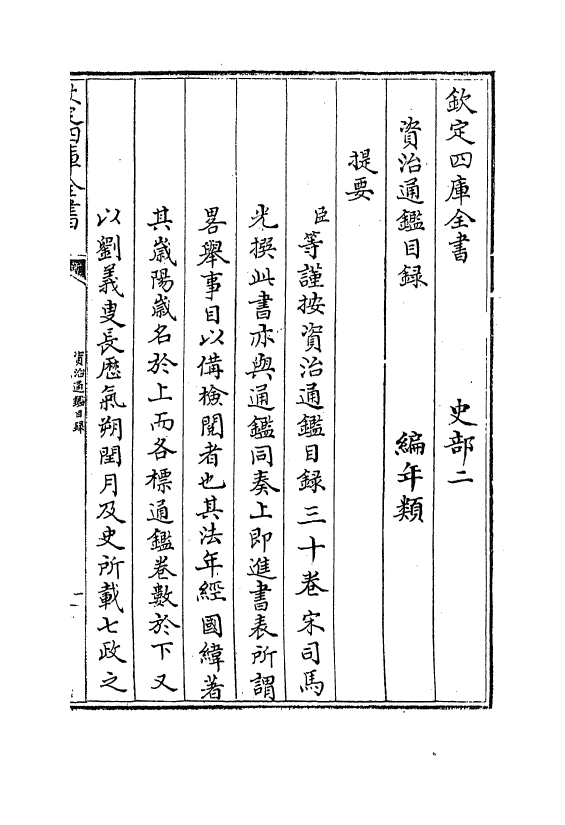 欽定四庫全書　史部二
資治通鑑目録　編年類
提要
臣等謹按資治通鑑目録三十卷宋司馬
光撰此書亦與通鑑同奏上即進書表所謂
畧舉事目以備檢閲者也其法年經國緯著
其嵗陽嵗名於上而各標通鑑卷數於下又
以劉義叟長歴氣朔閏月及史所載七政之
欽定四庫全書
資治通鑑目録
一